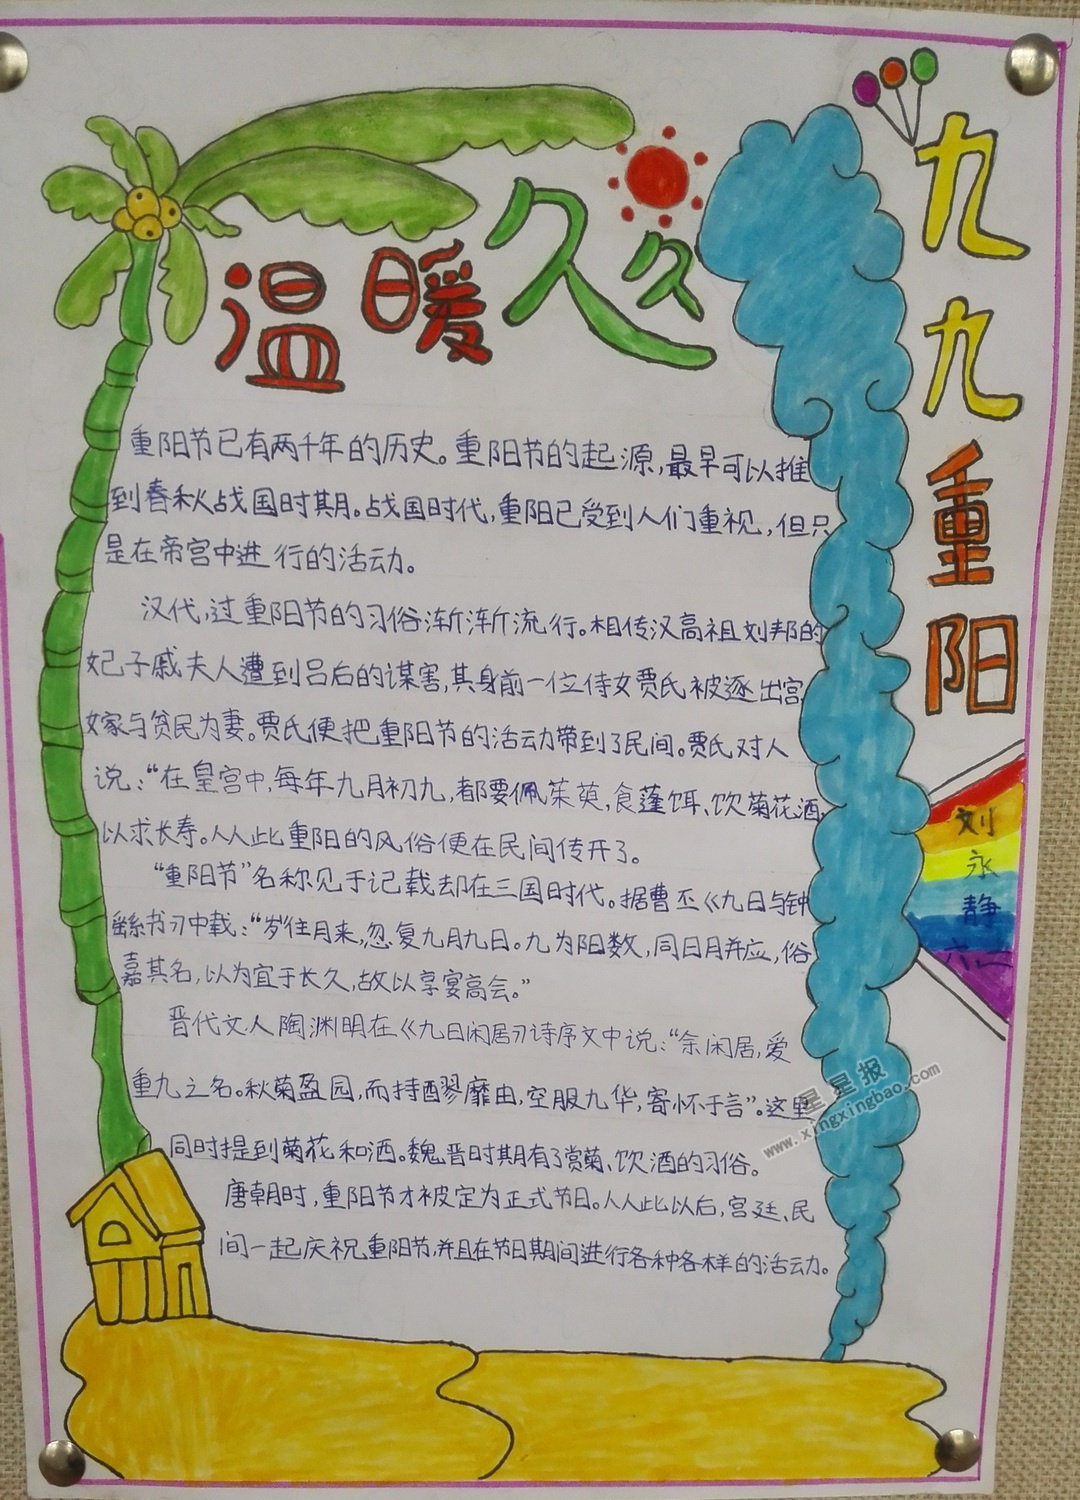 温暖久久
九九重阳
重阳节已有两千年的历史。重阳节的起源,最早可以推
到春秋战国时期。战国时代,重阳已受到人们重视,但只
是在帝宫中进行的活动。
汉代,过重阳节的习俗渐渐流行。相传汉高祖刘邦的
妃子戚夫人遭到吕后的谋害,其身前一位侍女贾氏被逐出宫,
嫁与贫民为妻。贾氏便把重阳节的活动带到了民间。贾氏对人
说:“在皇宫中,每年九月初九,都要佩茱萸,食蓬饵、饮菊花酒,
以求长寿。从此重阳的风俗便在民间传开了。
“重阳节”名称见于记载却在三国时代。据曹丕《九日与钟
繇书》中载:“岁往月来,忽复九月九日。九为阳数,同日月并应,俗
嘉其名,以为宜于长久,故以享宴高会。”
晋代文人陶渊明在《九日闲居》诗序文中说:“余闲居,爱
重九之名。秋菊盈园,而持醪靡由,空服九华,寄怀于言”。这里
同时提到菊花和酒。魏晋时期有了赏菊、饮酒的习俗。
唐朝时,重阳节才被定为正式节日。从此以后,宫廷、民
间一起庆祝重阳节,并且在节日期间进行各种各样的活动。
刘永静
六.二
星星报
www.xingxingbao.com